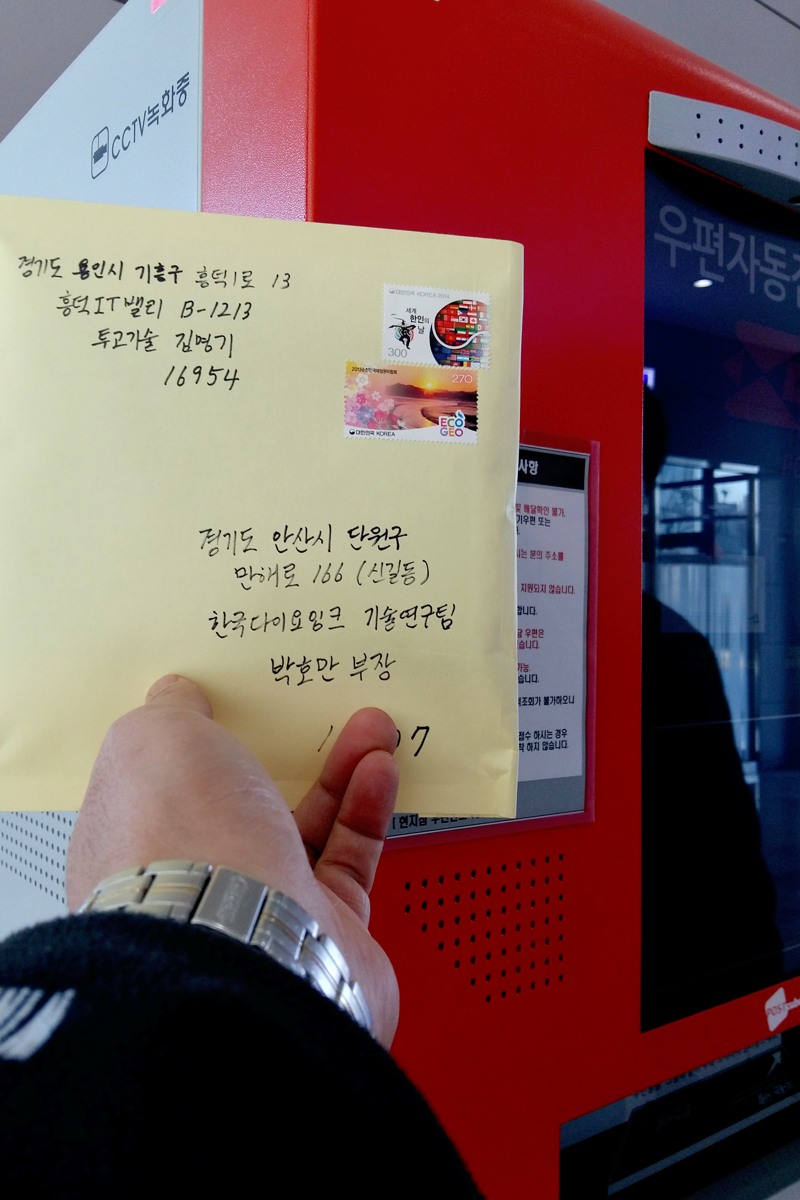 CCTV녹화중
우편자동
경기도 용인시 기흥구 흥덕1로 13
흥덕IT밸리 B-1213
투고기술 김명기
16954
대한민국 KOREA 2014
세계
한인의
날
300
270
ECO
GEO
대한민국 KOREA
경기도 안산시 단원구
만해로 166 (신길동)
한국다이요잉크 기술연구팀
박호만 부장
1 07
사항
및 배달확인 불가,
기우편 또는
시는 분의 주소를
지원되지 않습니다.
합니다.
달 우편은
습니다.
가능.
습니다.
적조회가 불가하오니
접수 하시는 경우
착 하지 않습니다.
POST